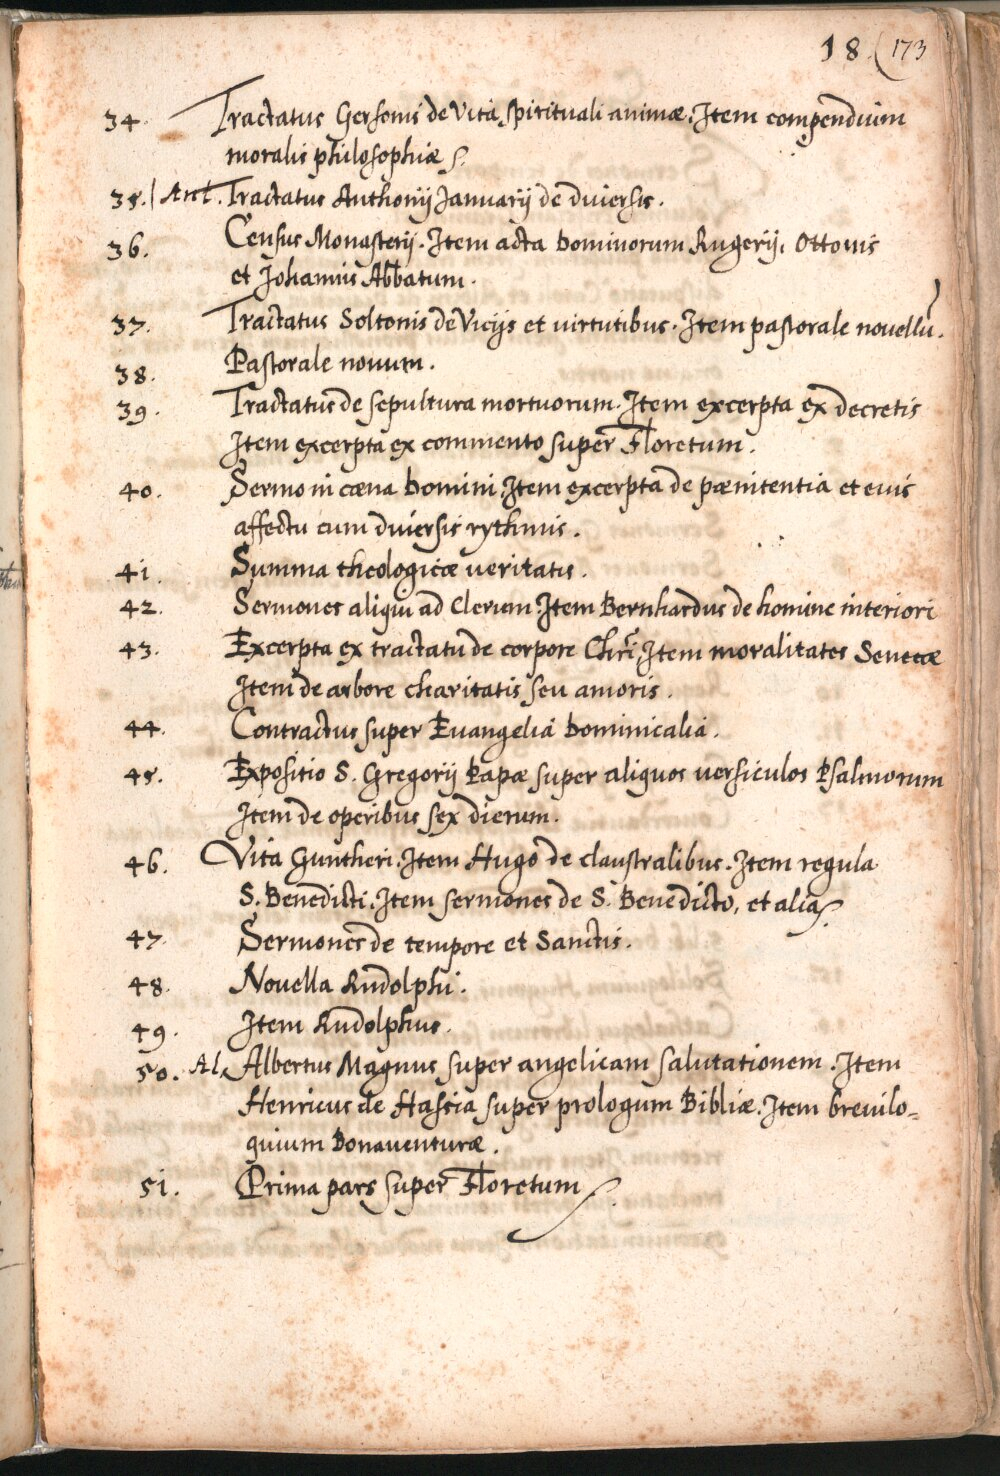 18. (173
34. Tractatus Gersonis de Vita Spirituali animæ. Item compendium
moralis philosophiæ
35. Ant. Tractatus Anthonij Januarij de diuersis.
36. Census Monasterij. Item acta Dominorum Rugerij, Ottonis
et Johannis Abbatum.
37. Tractatus Soltonis de Vicijs et virtutibus. Item pastorale novellū.
38. Pastorale nouum.
39. Tractatus de sepultura mortuorum. Item excerpta ex decretis
Item excerpta ex commento super Floretum.
40. Sermo in cæna Domini. Item excerpta de pænitentia et euis
affectu cum diuersis rythmis.
41. Summa theologicæ veritatis.
42. Sermones aliqui ad Clerum. Item Bernhardus de homine interiori
43. Excerpta ex tractatu de corpore Chri̅. Item moralitates Senecæ
Item de arbore charitatis seu amoris.
44. Contractus super Euangelia Dominicalia.
45. Expositio S. Gregorij Papæ super aliquos versiculos Psalmorum
Item de operibus sex dierum.
46. Vita Guntheri. Item Hugo de claustralibus. Item regula
S. Benedicti. Item sermones de S. Benedicto, et alia
47. Sermones de tempore et Sanctis.
48. Nouella Rudolphi.
49. Item Rudolphus.
50. Al. Albertus Magnus super angelicam salutationem. Item
Henricus de Hassia super prologum Bibliæ. Item breuilo=
quium Bonauenturæ.
51. Prima pars super Floretum